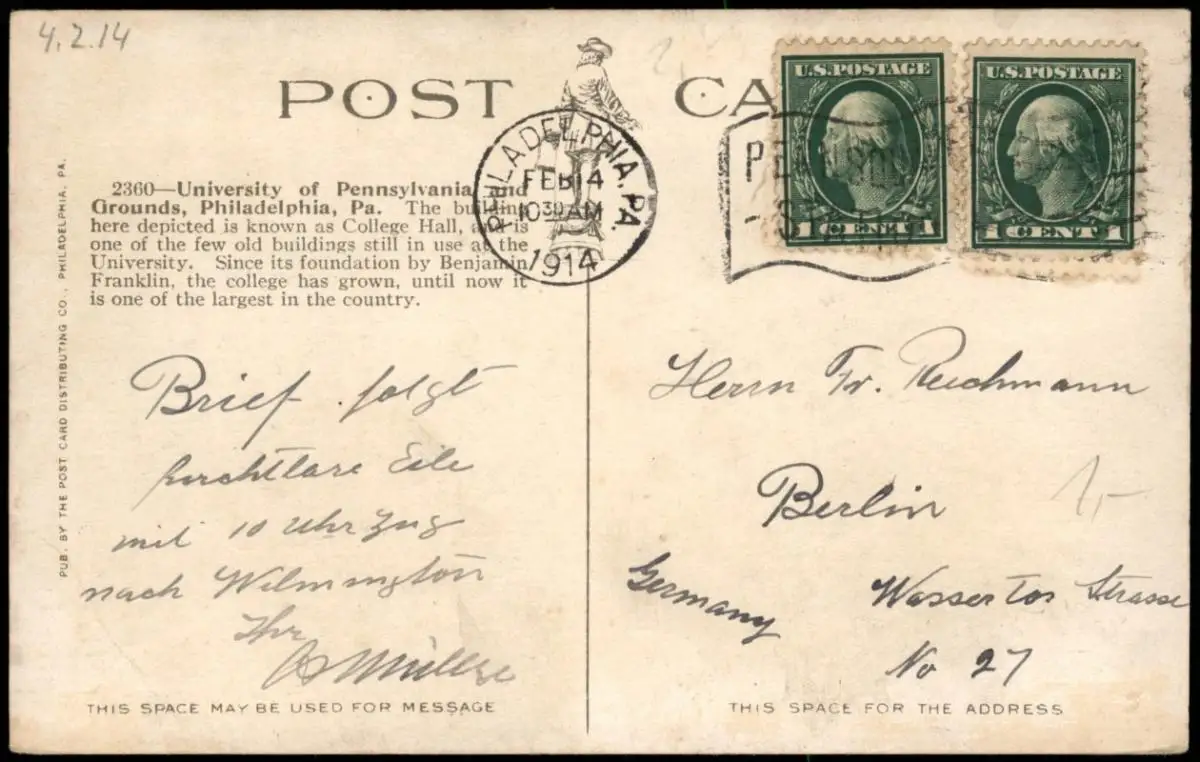 4.2.14
POST CA
U.S.POSTAGE
1 CENT 1
U.S.POSTAGE
1 CENT 1
PHILADELPHIA, PA.
FEB 14
10 30 AM
1914
2360—University of Pennsylvania and
Grounds, Philadelphia, Pa. The building
here depicted is known as College Hall, and is
one of the few old buildings still in use at the
University. Since its foundation by Benjamin
Franklin, the college has grown, until now it
is one of the largest in the country.
PUB. BY THE POST CARD DISTRIBUTING CO., PHILADELPHIA, PA.
Brief folgt
furchtbare Eile
mit 10 Uhr Zug
nach Wilmington
Ihr
Müller
THIS SPACE MAY BE USED FOR MESSAGE
Herrn Fr. Reichmann
Berlin
1,-
Germany
Wassertor Strasse
No 27
THIS SPACE FOR THE ADDRESS